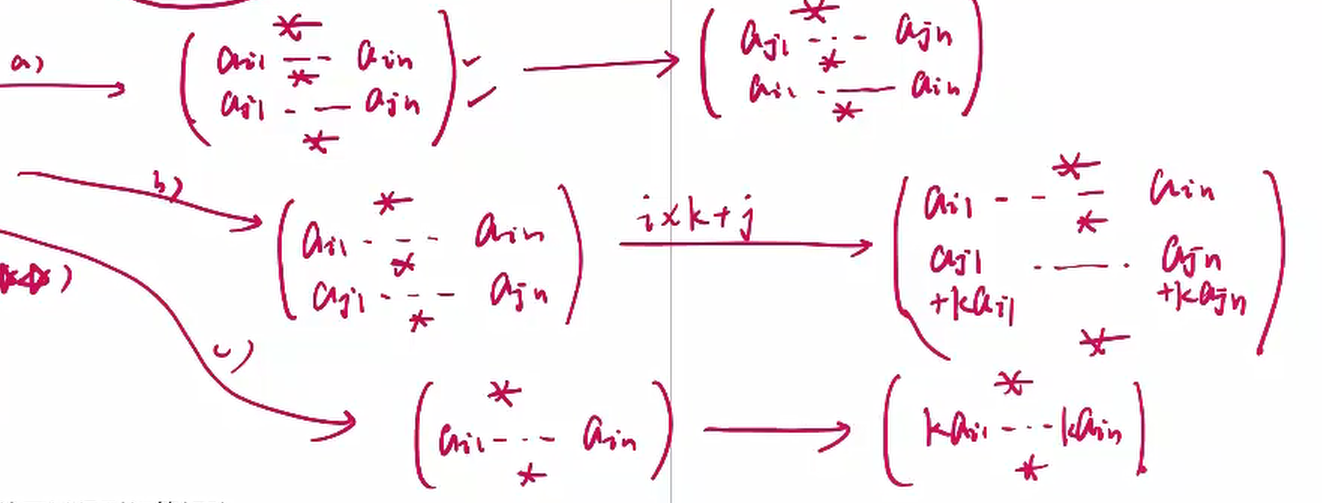 a) ( * ai1 - - ain * aj1 - - ajn * ) ✓ ✓ → ( * aj1 - - - ajn * ai1 - — ain * )
b) ( * ai1 - - - ain * aj1 - - - ajn * ) i×k+j → ( * ai1 - - - ain * aj1 - — - ajn +kai1 +kajn * )
)
c) ( * ai1 - - - ain * ) → ( * kai1 - - - kain * )